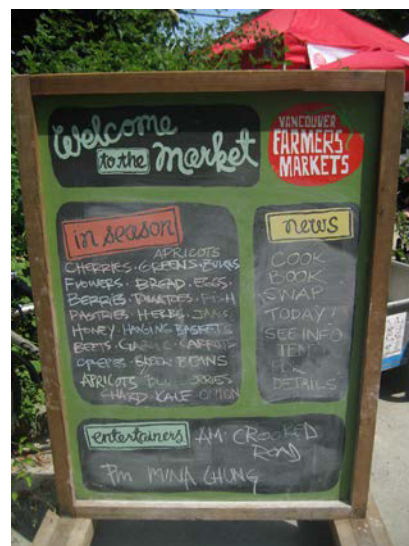 Welcome
to the market
VANCOUVER
FARMERS
MARKETS
in season
APRICOTS
CHERRIES · GREENS · BUNS
FLOWERS · BREAD · EGGS ·
BERRIES · TOMATOES · FISH
PASTRIES · HERBS · JAMS
HONEY · HANGING BASKETS
BEETS · GARLIC · CARROTS
CREPES · BEANS
APRICOTS
CHARD KALE ONION
news
COOK
BOOK
SWAP
TODAY!
SEE INFO
TENT
FOR
DETAILS
entertainers AM: CROOKED
ROAD
PM MINA CHUNG